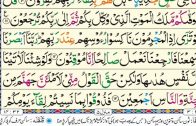 يَتَوَفّٰىكُمْ مَّلَكُ الْمَوْتِ الَّذِيْ وُكِّلَ بِكُمْ ثُمَّ اِلٰى رَبِّكُمْ تُرْجَعُوْنَ
وَلَوْ تَرٰۤى اِذِ الْمُجْرِمُوْنَ نَاكِسُوْا رُءُوْسِهِمْ عِنْدَ رَبِّهِمْ رَبَّنَاۤ اَبْصَرْنَا
وَسَمِعْنَا فَارْجِعْنَا نَعْمَلْ صَالِحًا اِنَّا مُوْقِنُوْنَ وَلَوْ شِئْنَا لَاٰتَيْنَا
كُلَّ نَفْسٍ هُدٰىهَا وَلٰكِنْ حَقَّ الْقَوْلُ مِنِّيْ لَاَمْلَـَٔنَّ جَهَنَّمَ مِنَ
الْجِنَّةِ وَالنَّاسِ اَجْمَعِيْنَ فَذُوْقُوْا بِمَا نَسِيْتُمْ لِقَآءَ يَوْمِكُمْ